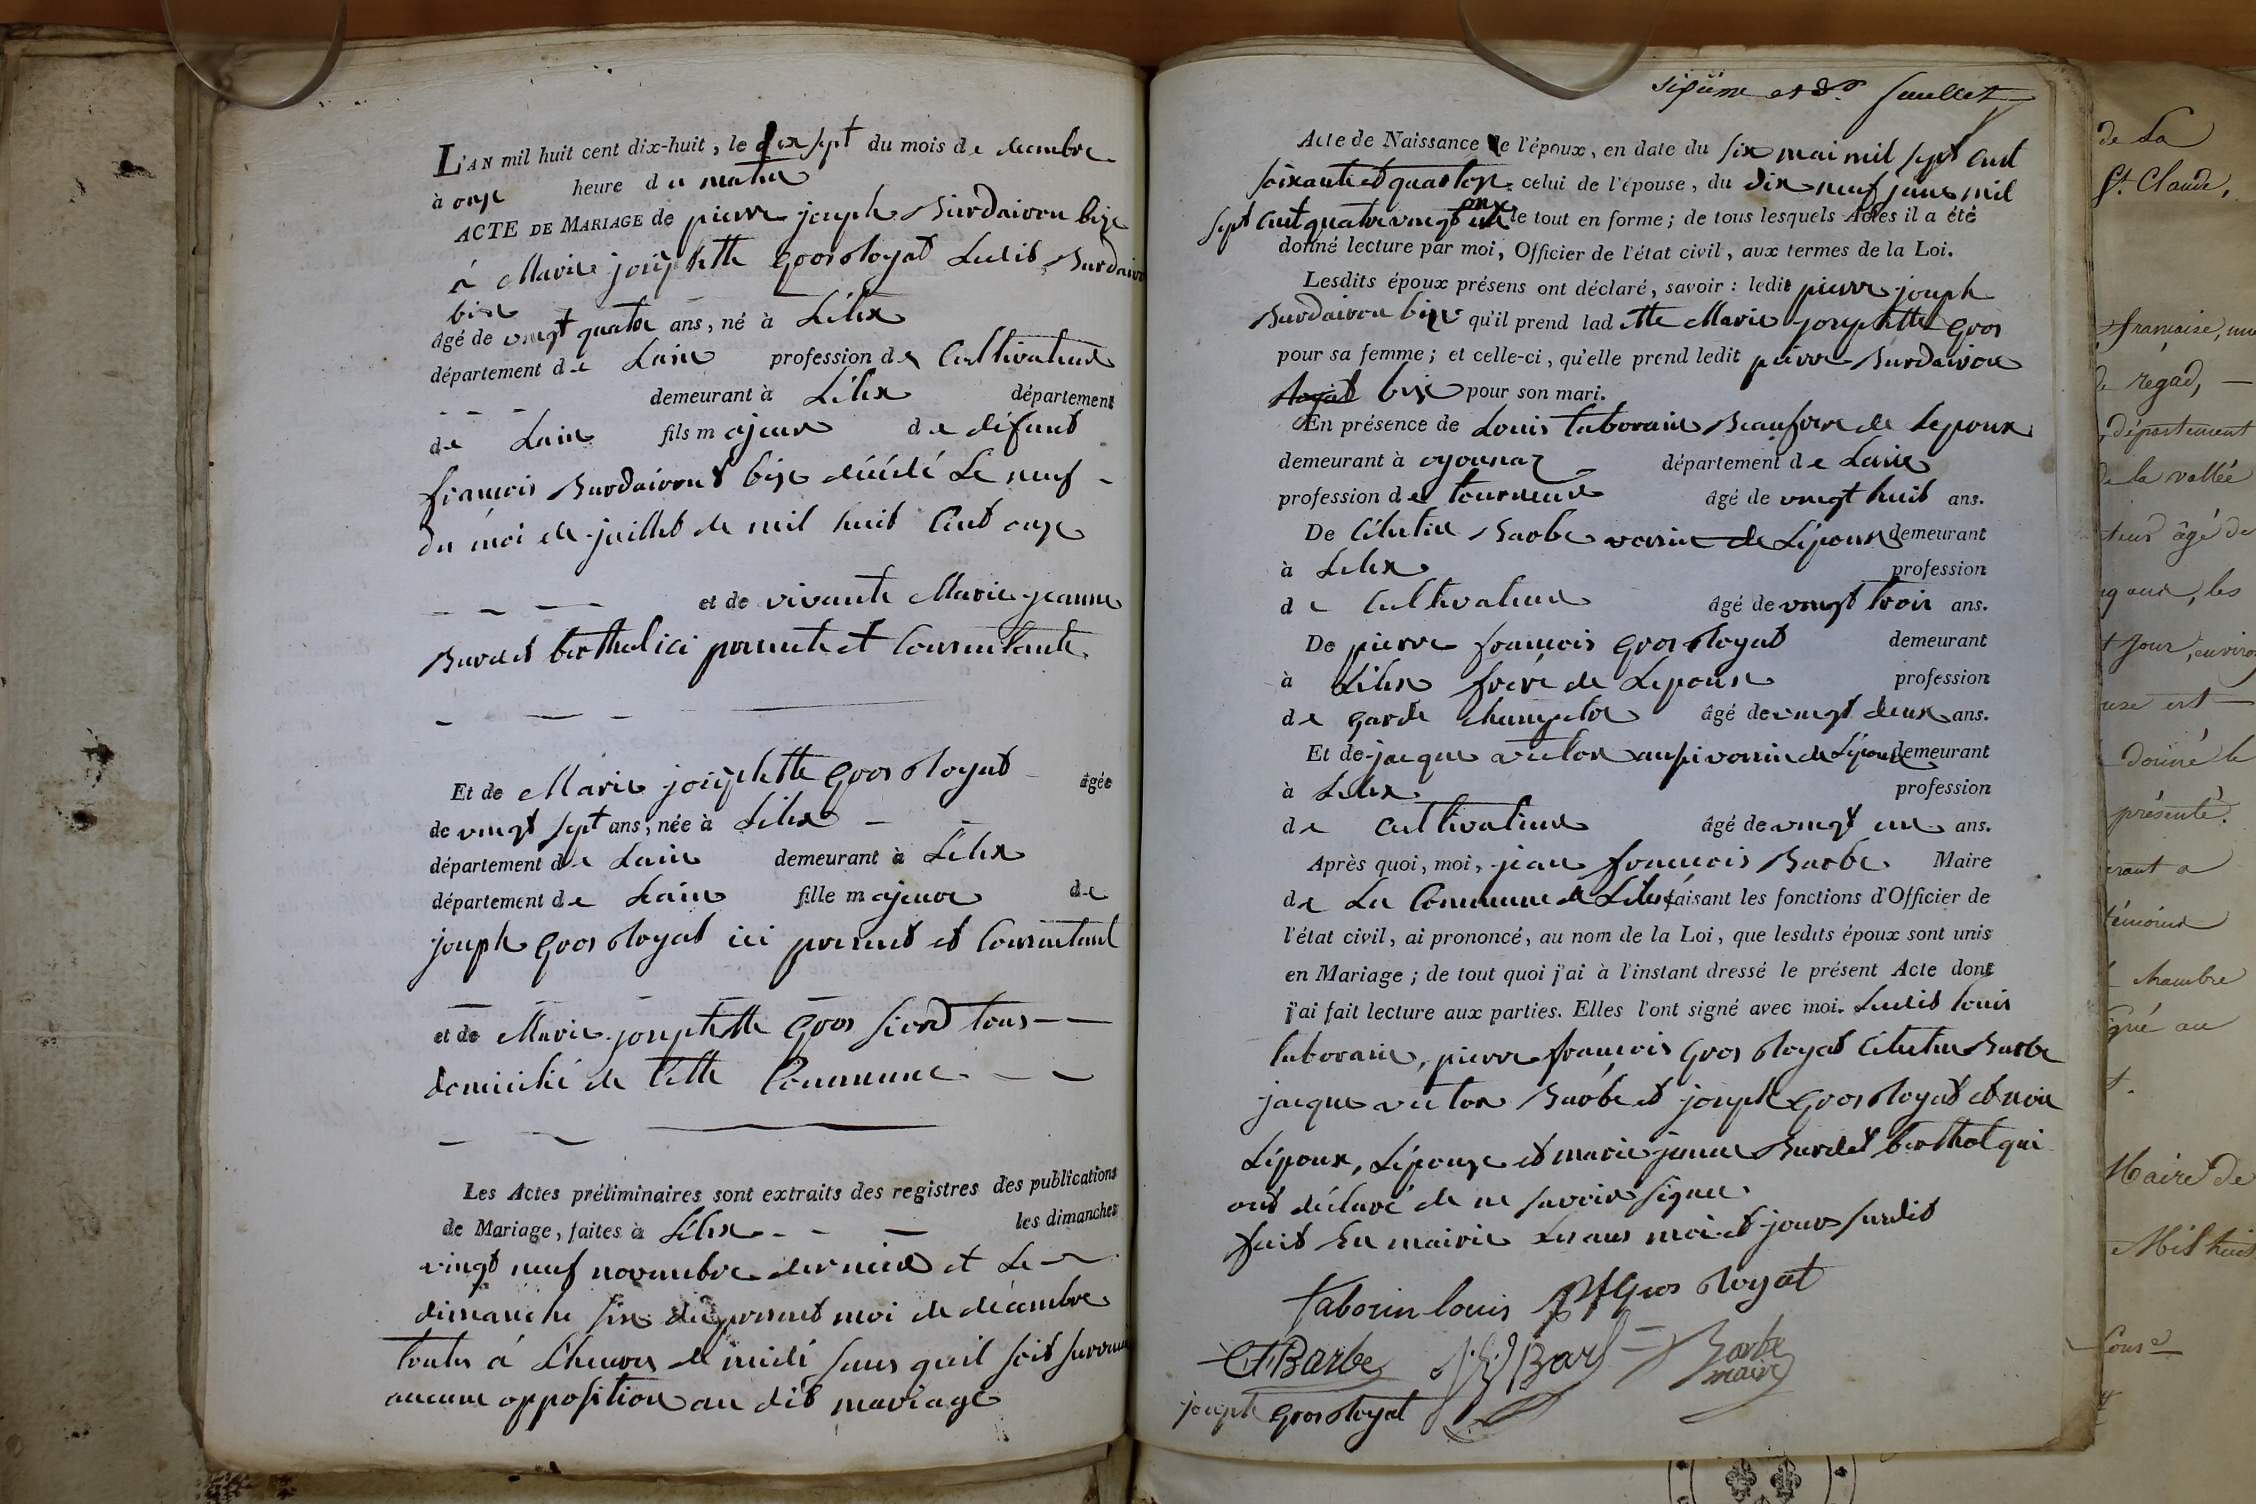 L'AN mil huit cent dix-huit, le dix sept du mois de decembre
à onze heure du matin
ACTE DE MARIAGE de pierre joseph Burdairon bize
à Marie josephette Gros Royat Ledit Burdairon
bize
âgé de vingt quatre ans, né à Lélex
département de Lain profession de Cultivateur
demeurant à Lélex département
de Lain fils majeur de défunt
françois Burdairont bize décédé Le neuf
du moi de juillet de mil huit Cent onze
et de vivante Marie jeanne
Burdet berthet ici presente et Consentante
Et de Marie josephette Gros Royat âgée
de vingt sept ans, née à Lélex
département de Lain demeurant à Lélex
département de Lain fille majeure de
joseph Gros Royat ici present et Consentant
et de Marie josephette Gros tous
domicilié de Cette Commune
Les Actes préliminaires sont extraits des registres des publications
de Mariage, faites à Lélex les dimanches
vingt neuf novembre dernier et Le
dimanche six du present moi de décembre
toutes à Lheure de midi sans quil soit survenu
aucune opposition au dit mariage
et dr feuillet
Acte de Naissance de l'époux, en date du six mai mil sept cent
soixante et quatorze celui de l'épouse, du dix neuf juin mil
sept Cent quatre vingt onze le tout en forme; de tous lesquels Actes il a été
donné lecture par moi, Officier de l'état civil, aux termes de la Loi.
Lesdits époux présens ont déclaré, savoir: ledit pierre joseph
Burdairon bize qu'il prend ladette Marie josephette Gros
pour sa femme; et celle-ci, qu'elle prend ledit pierre Burdairon
Royat bize pour son mari.
En présence de Louis taborin Beaufrere de Lepoux
demeurant à oyonnaz département de Lain
profession de tourneur âgé de vingt huit ans.
De Célestin Barbe voisin de Lépoux demeurant
à Lélex profession
de Cultivateur âgé de vingt trois ans.
De pierre françois Gros Royat demeurant
à Lélex frère de Lepouse profession
de garde champetre âgé de vingt deux ans.
Et de jacque victor aussi voisin de Lépoux demeurant
à Lélex profession
de Cultivateur âgé de vingt un ans.
Après quoi, moi, jean françois Barbe Maire
de La Commune de Lélex faisant les fonctions d'Officier de
l'état civil, ai prononcé, au nom de la Loi, que lesdits époux sont unis
en Mariage; de tout quoi j'ai à l'instant dressé le présent Acte dont
j'ai fait lecture aux parties. Elles l'ont signé avec moi. Lesdits Louis
taborin, pierre françois Gros Royat Célestin Barbe
jacque victor Barbe et joseph Gros Royat et non
Lépoux, Lépouse et marie jeanne Burdet berthet qui
ont déclaré de ne savoir signer
fait En mairie Les ans moi et jour susdit
taborin louis pf Gros Royat
Barbe Barbe
maire
joseph Gros Royat
de La
St. Claude,
française,
département
de la vallée
âgé de
les
Jour, environ
est
Donné le
présenté.
a
témoins
chambre
au
Maire de
Mil huit